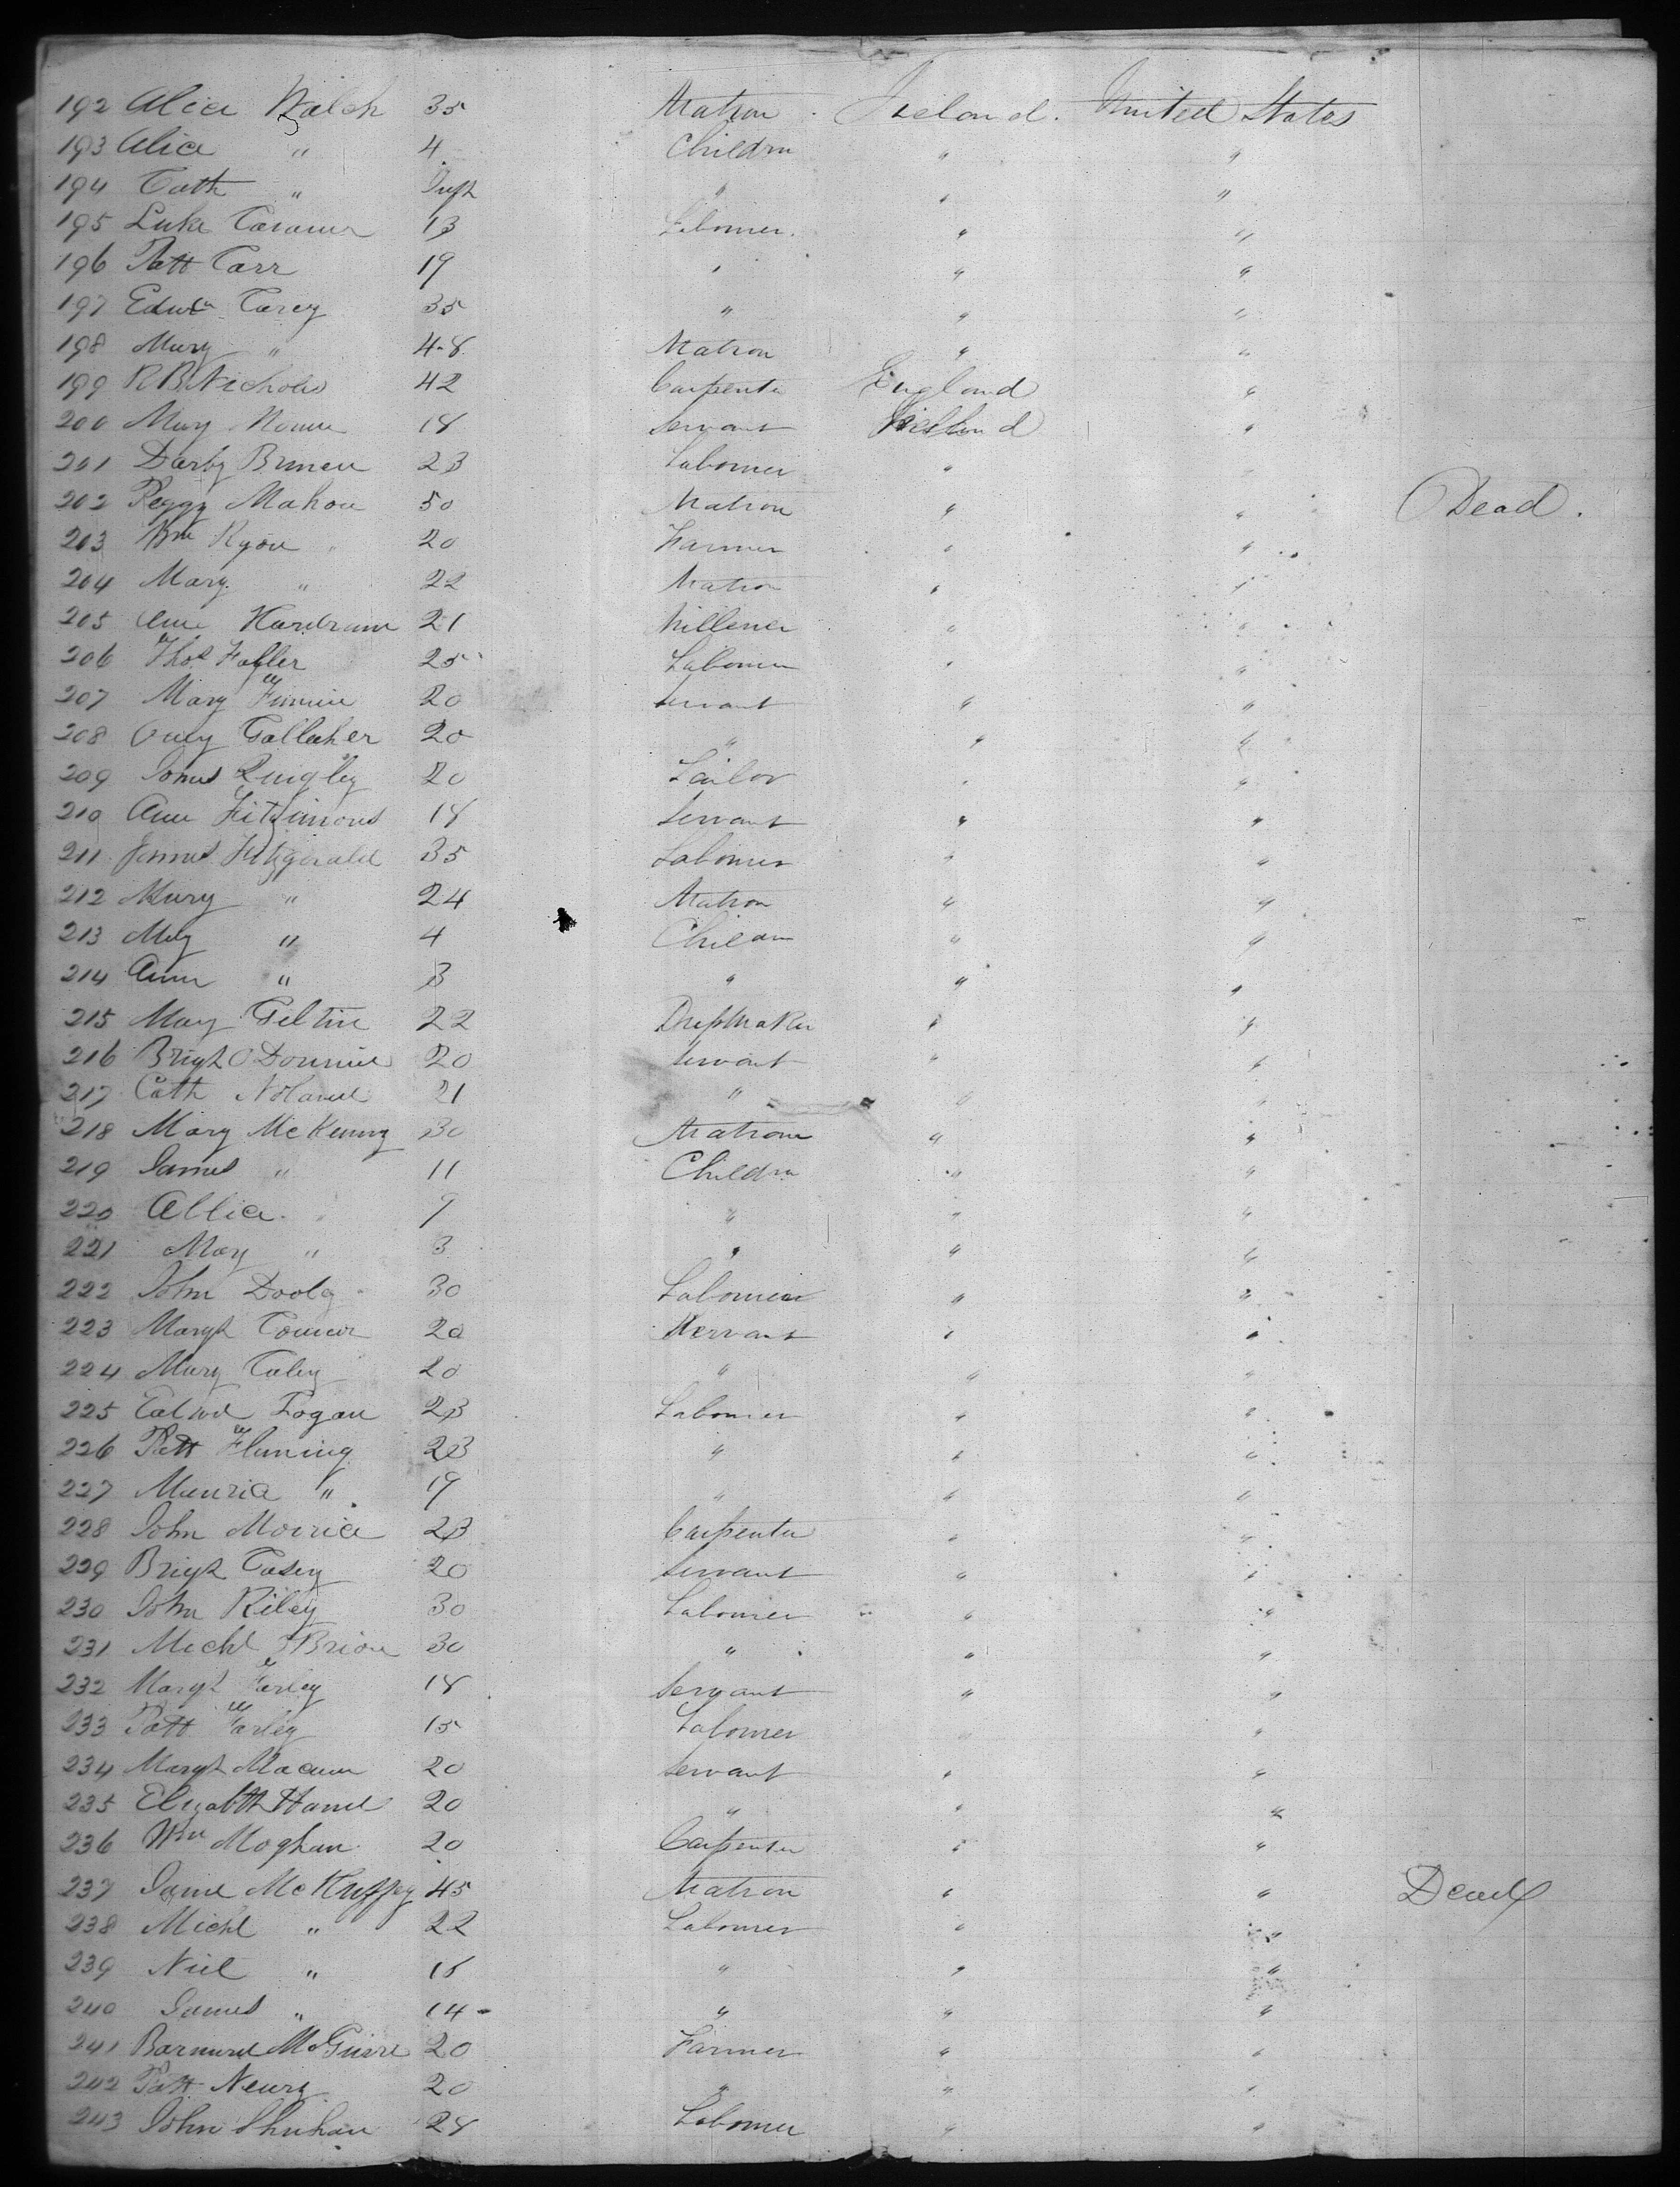 192 Alice Walch 35 Matron Ireland. United States
193 Alice " 4 Childrn " "
194 Cath " Inft " " "
195 Luke 13 Labourer. " "
196 Patt Carr 19 " " "
197 Edwd Carey 35 " " "
198 Mary " 48 Matron " "
199 R B Nichols 42 Carpenter England "
200 Mary 18 Servant Ireland "
201 Darby 23 Labourer "
202 Peggy Mahon 50 Matron " " Dead.
203 Wm Ryan 20 Farmer " "
204 Mary " 22 Matron " "
205 Ann 21 Millener " "
206 Thos 25 Labourer " "
207 Mary 20 Servant " "
208 Gallaher 20 " " "
209 James Quigley 20 Tailor " "
210 Ann Fitzimons 18 Servant " "
211 James Fitzgerald 35 Labourer " "
212 Mary " 24 Matron " "
213 " 4 Childrn " "
214 Ann " 3 " " "
215 May 22 DressMaker " "
216 Brigt O Donnie 20 Servant " "
217 Cath Noland 21 " " "
218 Mary McKenny 30 Matron " "
219 James " 11 Childrn " "
220 Allice " 9 " " "
221 May " 3 " " "
222 John Dooly 30 Labourer " "
223 Margt 20 Servant " "
224 Mary 20 " " "
225 Fogan 23 Labourer " "
226 Patt Fluming 23 " " "
227 " 19 " " "
228 John Morrice 23 Carpenter " "
229 Brigt Casey 20 Servant " "
230 John Riley 30 Labourer " "
231 Michl OBrien 30 " " "
232 Margt Farley 18 Servant " "
233 Patt Farley 15 Labourer "
234 Margt 20 Servant " "
235 Elizabth 20 " " "
236 Wm Moghan 20 Carpenter " "
237 45 Matron " " Dead
238 Michl " 22 Labourer " "
239 Niel " " " "
240 James " 14 " " "
241 McGuire 20 Farmer " "
242 Patt Neury 20 " " "
243 John 28 Labourer " "